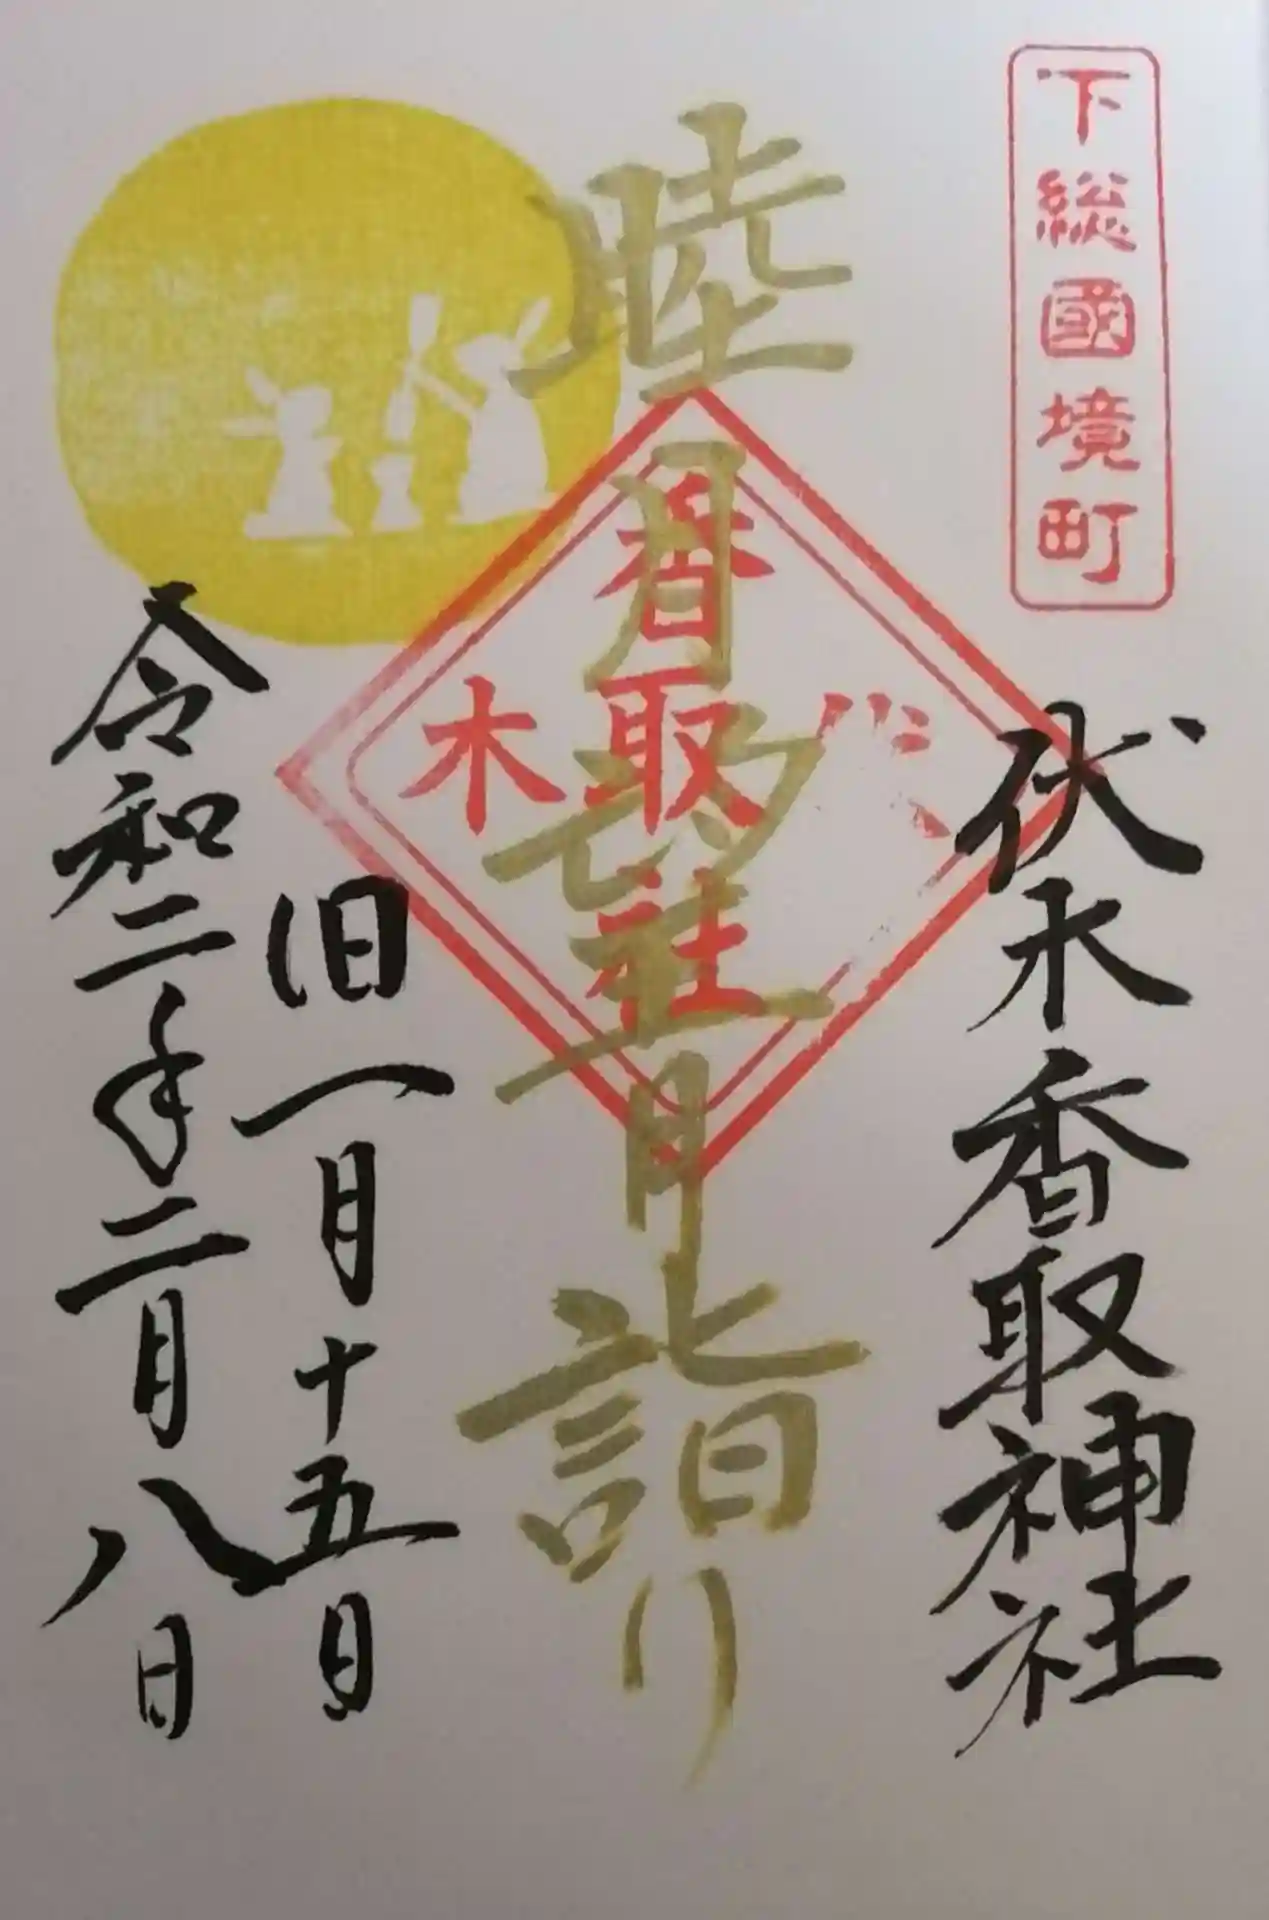 下総國境町
伏木香取神社
睦月望月詣り
伏木
香取社
旧一月十五日
令和二年二月八日